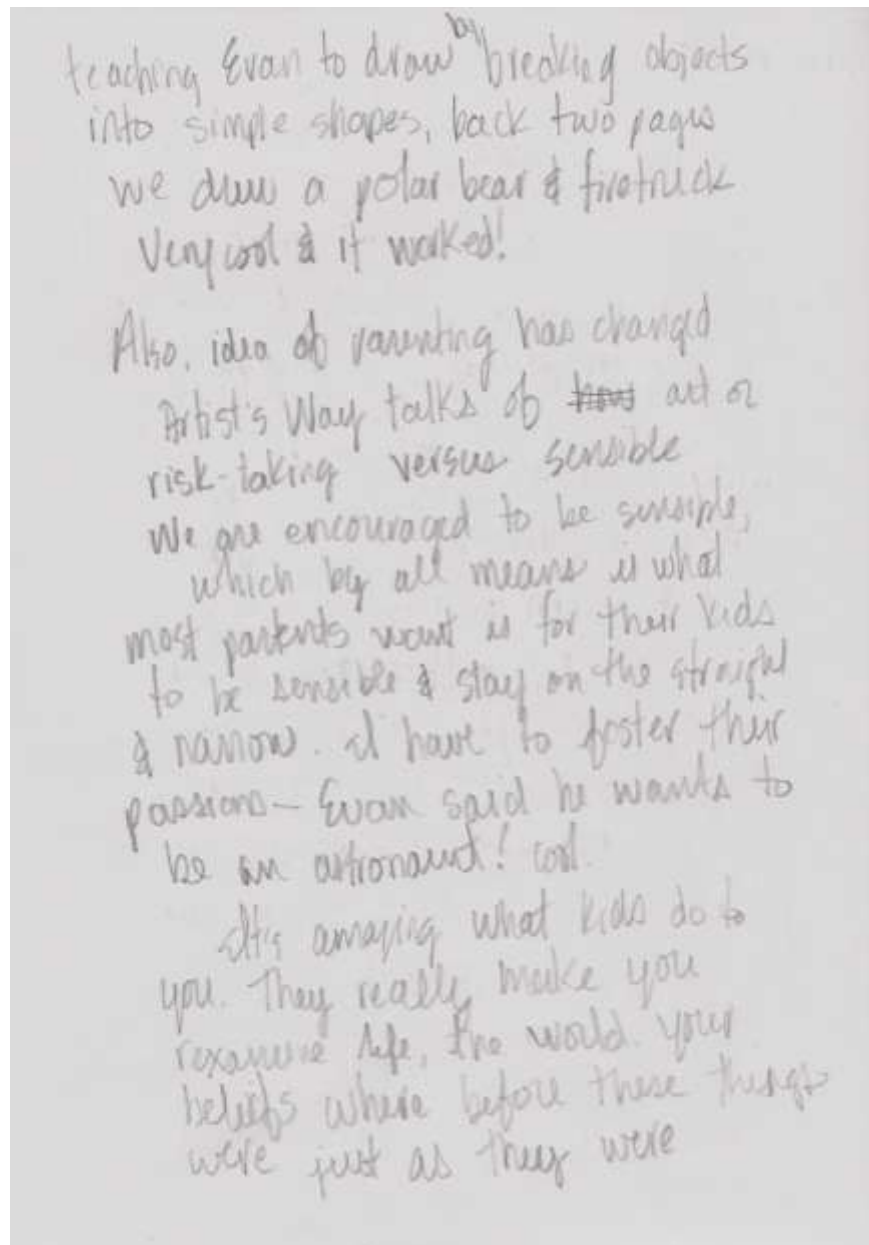 teaching Evan to draw by breaking objects
into simple shapes, back two pages
we drew a polar bear & firetruck
Very cool & it worked!
Also, idea of parenting has changed
Artist's Way talks of art or
risk-taking versus sensible
We are encouraged to be sensible,
which by all means is what
most parents want is for their kids
to be sensible & stay on the straight
& narrow. I have to foster their
passions - Evan said he wants to
be an astronaut! cool.
It's amazing what kids do to
you. They really make you
rexamine life, the world. your
beliefs where before these things
were just as they were